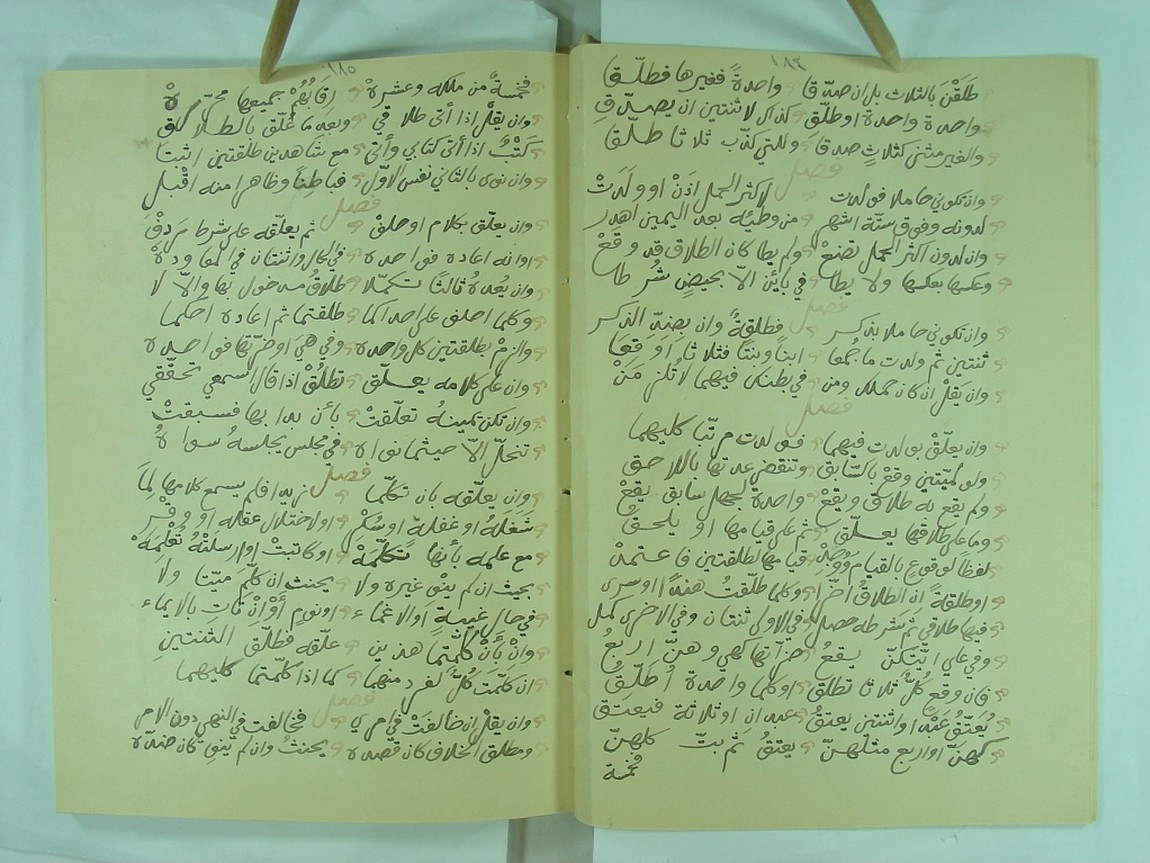 ١٨٢
طَلَقْنَ بالثلاث بل ان صدّقا واحدةً فغيرها فطلّقا
واحدة واحدة او طلّق كذاك لاثنتين ان يصدّق
والغير مثنى كثلاثٍ صدقا وللتي كذّب ثلاثا طلّقا
فصل
وان تكوني حاملا فولدت لاكثر الحمل اذنْ او ولَدَتْ
لدونه وفوق ستّة اشهر من وطئِه بعد اليمين اهدر
وان لدون اكثر الحمل تضعْ ولم يطا كان الطلاق قد وقعْ
وعكسها بعكسها ولا يطا في بائن الاّ بحيضٍ شُرطا
فصل
وان تكوني حاملا بذكر فطلقةٌ وان بضدّ الذكر
ثنتين ثم ولدت ما جُمعا ابناً وبنتاً فثلاثا اوقعا
وان يقل ان كان حملك ومن في بطنك فيهما لا تُلزمَنْ
فصل
وان يعلّقْ بولدت فيهما فولدت مرتّبا كليهما
ولو لميّتين وقعْ بالسّابق وتنقض عدتها باللاحق
ولم يقع به طلاق ويقعْ واحدة لجهل سابق يقعْ
وما على طلاقها يعلّق ثم على قيامها او يلحقُ
لفظاً لوقوع بالقيام ووُجِدْ قيامها لطلقتين فاعتمدْ
او طلقةً ان الطلاقُ أخّرا وكلما طلّقتُ هندا او سرى
فيها طلاقي ثم شرطه حصل في الاولى ثنتان وفي الاخرى كمل
وفي على ايّتكنّ يقعُ ضرّاتها كهي وهنّ اربعُ
فان وقع كُلٌّ ثلاثا تطلقُ او كلما واحدة أطلّقُ
يُعتَقُ عَبْد او اثنتين يعتقُ عبدان او ثلاثة فيعتق
كهنّ او اربع مثلهنّ يعتقُ ثم بتّ كلهنّ
فخمسة
١٨٥
فخمسةٌ من ملكه وعشرةْ رقابُهُمْ جميعها محرّرةْ
وان يقلْ اذا أتى طلاقي وبعد ما عُلّق بالطلاق
كَتْبٌ اذا أتى كتابي وأتى مع شاهدين طلقتين اثبتا
وان نوى بالثاني نفس الاوّل فباطناً وظاهرا منه اقبل
فصل
وان يعلّق بكلام او حلفْ ثم يعلّقه على شرط رَدفْ
او انه اعاده فواحده في الحال واثنتان في المعاوده
وان يُعدهُ ثالثاً تكمّلا طلاقُ مدخول بها والاّ لا
وكلما احلف على احداكما طلقتما ثم اعاده احكما
والزمْ بطلقتين كل واحده وفي هي او ضرّتها فواحده
وان على كلامه يعلّق تطلُقْ اذا قال اسمعي تحقّقي
وان تكن يمينهُ تعلّقتْ بأن بدا بها فسبقتْ
تنحلّ الاّ حيثما نواه في مجلس يجلسهُ سواهُ
فصل
وان يعلّقه بان تكلّما زيدا فلم يسمع كلامها لِمَا
شَغَلَهُ او غفلة او سُكْرِ او لاختلال عقله او وقْرِ
مع علمه بأنها تَكَلّمَهْ او كاتبتْ او ارسلتْهُ تُعْلِمَهْ
بحيث ان لم ينو غيره ولا يحنث ان كلّم ميّتا ولا
في حال غيبةٍ أو الاغماء او نومٍ أوْ انْ تأتِ بالايماء
وانْ بأنْ كلّمتما هذين علّقه فطلّقِ الثنتين
ان كلّمَتْ كُلٌّ لفرد منهما كما اذا كلّمتما كليهما
فصل
وان يقل ان خالفَتْ في امري فخالفت في النهي دون الامر
ومطلق الخلاف كان قصده يحنثُ وان لم ينو كان ضدّه